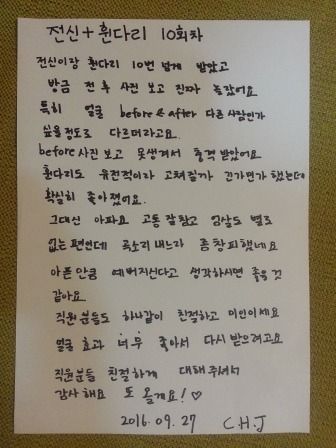 전신+휜다리 10회차
전신이랑 휜다리 10번 넘게 받았고
방금 전 후 사진 보고 진짜 놀랐어요
특히 얼굴 before & after 다른 사람인가
싶을정도로 다르더라고요.
before사진 보고 못생겨서 충격 받았어요
휜다리도 유전적이라 고쳐질까 긴가민가 했는데
확실히 좋아졌어요.
그대신 아파요 고통 잘참고 엄살도 별로
없는 편인데 곡소리 내느라 좀 창피했네요
아픈 만큼 예뻐지신다고 생각하시면 좋을 것
같아요
직원분들도 하나같이 친절하고 미인이세요
얼굴 효과 너무 좋아서 다시 받으려고요
직원분들 친절하게 대해주셔서
감사해요 또 올게요! ♡
2016.09.27 C H.J